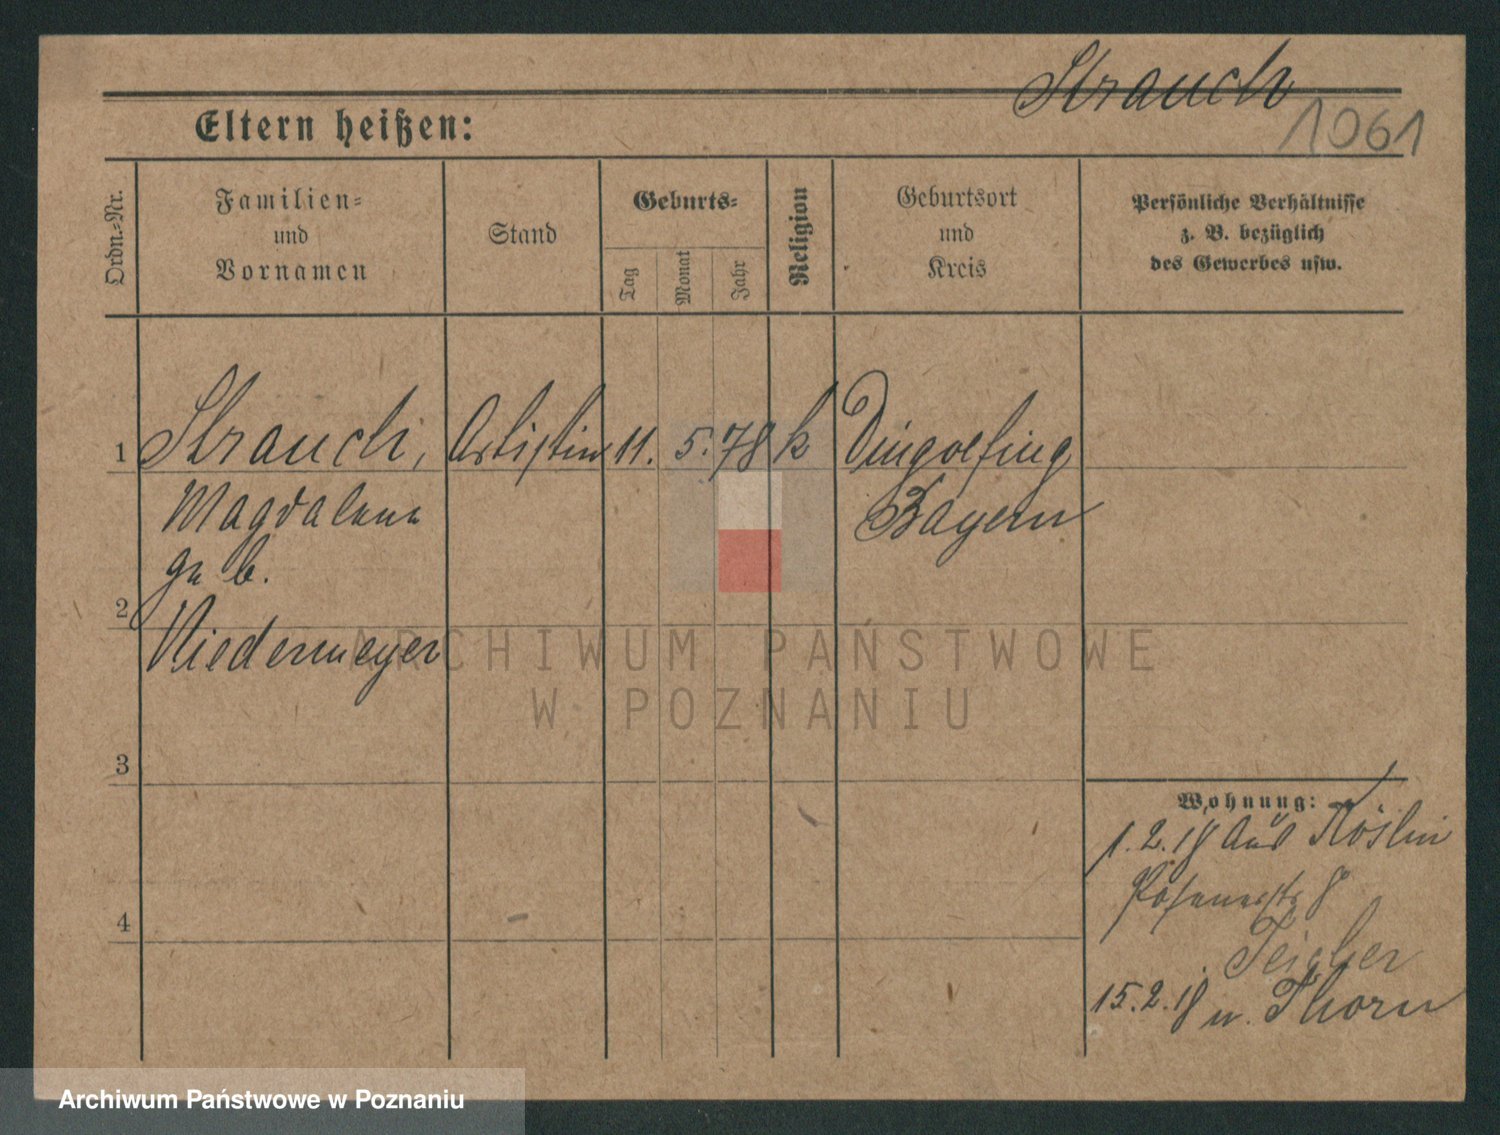 Strauch
1061
Eltern heißen:
Ordn.-Nr.
Familien-
und
Vornamen
Stand
Geburts-
Tag
Monat
Jahr
Religion
Geburtsort
und
Kreis
Persönliche Verhältnisse
z. B. bezüglich
des Gewerbes usw.
1 Strauch, Artistin 11. 5. 78 k Dingolfing
Magdalena Bayern
geb.
2
Niedermeyer
3
Wohnung:
1.2.18 aus Köslin
Posenerstr 8
4
15.2.18 n. Thorn
ARCHIWUM PAŃSTWOWE
W POZNANIU
Archiwum Państwowe w Poznaniu